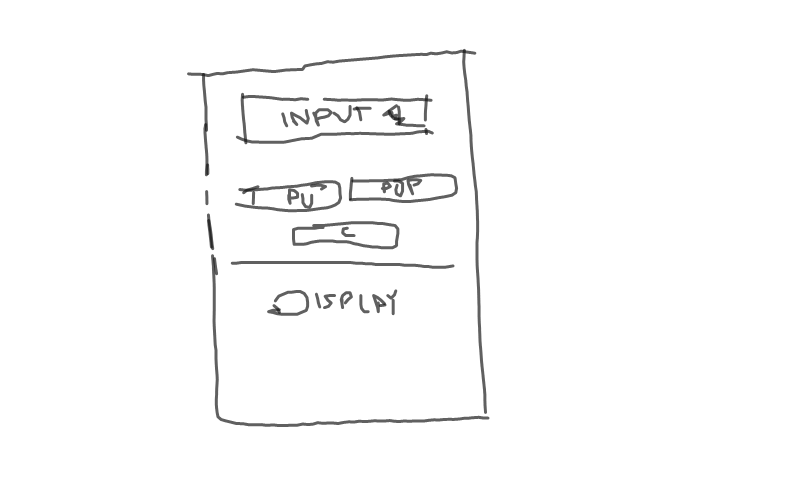 INPUT
POP
C
DISPLAY